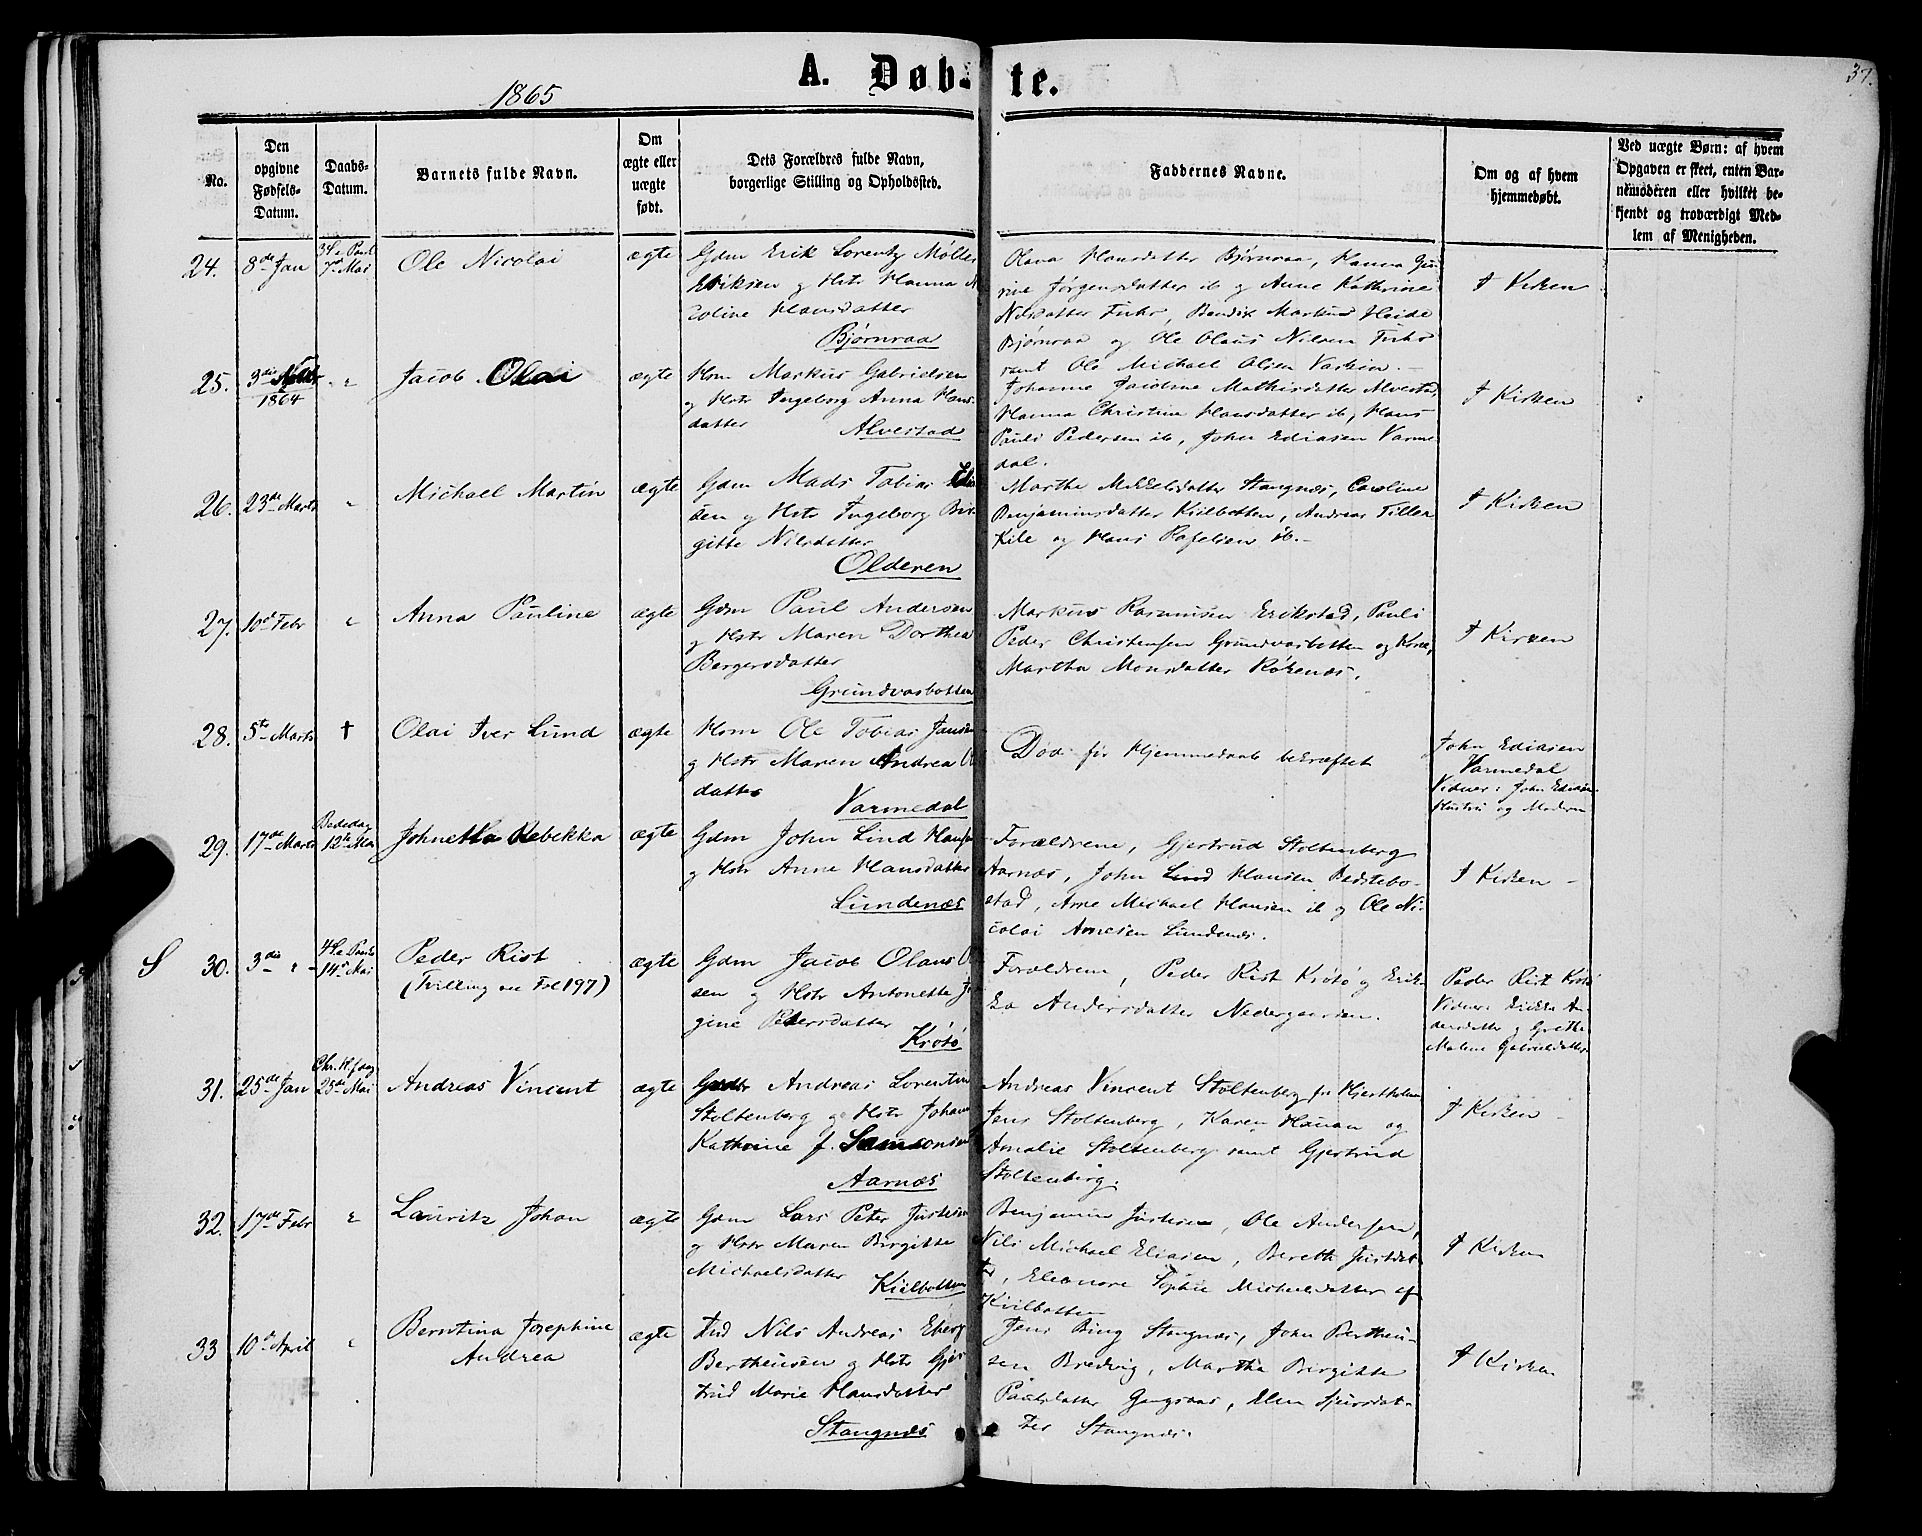 37.
1865
A. Døbte.
No.
Den opgivne Fødsels-Datum.
Daabs-Datum.
Barnets fulde Navn.
Om ægte eller uægte født.
Dets Forældres fulde Navn, borgerlige Stilling og Opholdssted.
Faddernes Navne.
Om og af hvem hjemmedøbt.
Ved uægte Børn: af hvem Opgaven er skeet, enten Barnemoderen eller hvilket bekjendt og troværdigt Medlem af Menigheden.
24.
8de Jan
3 S. e. Paask
7de Mai
Ole Nicolai
ægte
Gdm Erik Lorentz Møller
Eriksen og Hstr Hanna Ni
coline Hansdatter
Bjørnraa
Olava Hansdatter Bjørnraa, Hanna Gu
rine Jørgensdatter ib og Anne Kathrine
Nilsdatter Fuhr, Bendix Markus Heide
Bjørnraa og Ole Olaus Nilsen Fuhr
samt Ole Michael Olsen
I Kirken
25.
3die
1864
"
Jacob Olai
ægte
Hsm Markus Gabrielsen
og Hstr Ingeborg Anna Hans-
datter
Alvestad
Johanne Jacobine Mathisdatter Alvestad,
Hanna Christine Hansdatter ib, Hans
Pauli Pedersen ib, John Ediasen Varme
dal.
I Kirken
26.
23de Marts
"
Michael Martin
ægte
Gdm Mads Tobias
sen og Hstr Ingeborg Bir-
gitte Nilsdatter
Olderen
Marthe Mikkelsdatter Stangnæs, Caroline
Benjaminsdatter Kiilbotten, Andreas Tiller
Kile og Hans ib.
I Kirken
27.
10de Febr
"
Anna Pauline
ægte
Gdm Paul Andersen
og Hstr Maren Dorthea
Bergersdatter
Grundvasbotten
Markus Rasmusen Erikstad, Pauli
Peder Christensen Grundvasbotten og
Martha Monsdatter Røkenæs.
I Kirken
28.
5te Marts
†
Olai Iver Lund
ægte
Hsm Ole Tobias Jansen
og Hstr Maren Andrea
datter
Varmedal
Død før Hjemmedaab bekræftet
John Ediasen
Varmedal
Vidner: John Ediasens
Hustru og Moderen
29.
17de Marts
Bededag
12te Mai
Johnetta Rebekka
ægte
Gdm John Lind Hansen
og Hstr Anne Hansdatter
Lundenæs
Forældrene, Gjertrud Stoltenberg
Aarnæs, John Lind Hansen Bedstebo-
stad, Arne Michael Hansen ib og Ole Ni-
colai Arnesen Lundenæs.
I Kirken
S
30.
3die "
4 S. e. Paaske
14de Mai
Peder Rist
(Tvilling see Fol 197)
ægte
Gdm Jacob Olaus
sen og Hstr Antonette
gine Pedersdatter
Krøtø
Forældrene, Peder Rist Krøtø og Erik-
ka Andersdatter Nedergaarden.
Peder Rist Krøtø
Vidner: Erikka An
dersdatter og Grethe
Malene Gabrielsdatter
31.
25de Jan
Chr. H.f.dag
25de Mai
Andreas Vincent
ægte
Andreas Lorentz
Stoltenberg og Hstr Johan
Kathrine f. Samsonsen
Aarnæs
Andreas Vincent Stoltenberg fr Hjertholmen
Jens Stoltenberg, Karen Hanan og
Amalie Stoltenberg samt Gjertrud
Stoltenberg.
I Kirken
32.
17de Febr
"
Lauritz Johan
ægte
Gdm Lars Peter Justesen
og Hstr Maren Birgitte
Michaelsdatter
Kiilbotten
Benjamin Justesen, Ole Andersen,
Nils Michael Eliasen, Bereth Justdat-
ter, Eleonore Sophie Michaelsdatter af
Kiilbotten
I Kirken
33
10de April
"
Berntina Josephine
Andrea
ægte
Ind Nils Andreas Eberg
Bertheusen og Hstr Gjer
trud Marie Hansdatter
Stangnæs
Jens Bing Stangnæs, John Bertheu-
sen Bredvig, Marthe Birgitte
Paulsdatter Gangsaas, Elen Sjursdat-
ter Stangnæs.
I Kirken